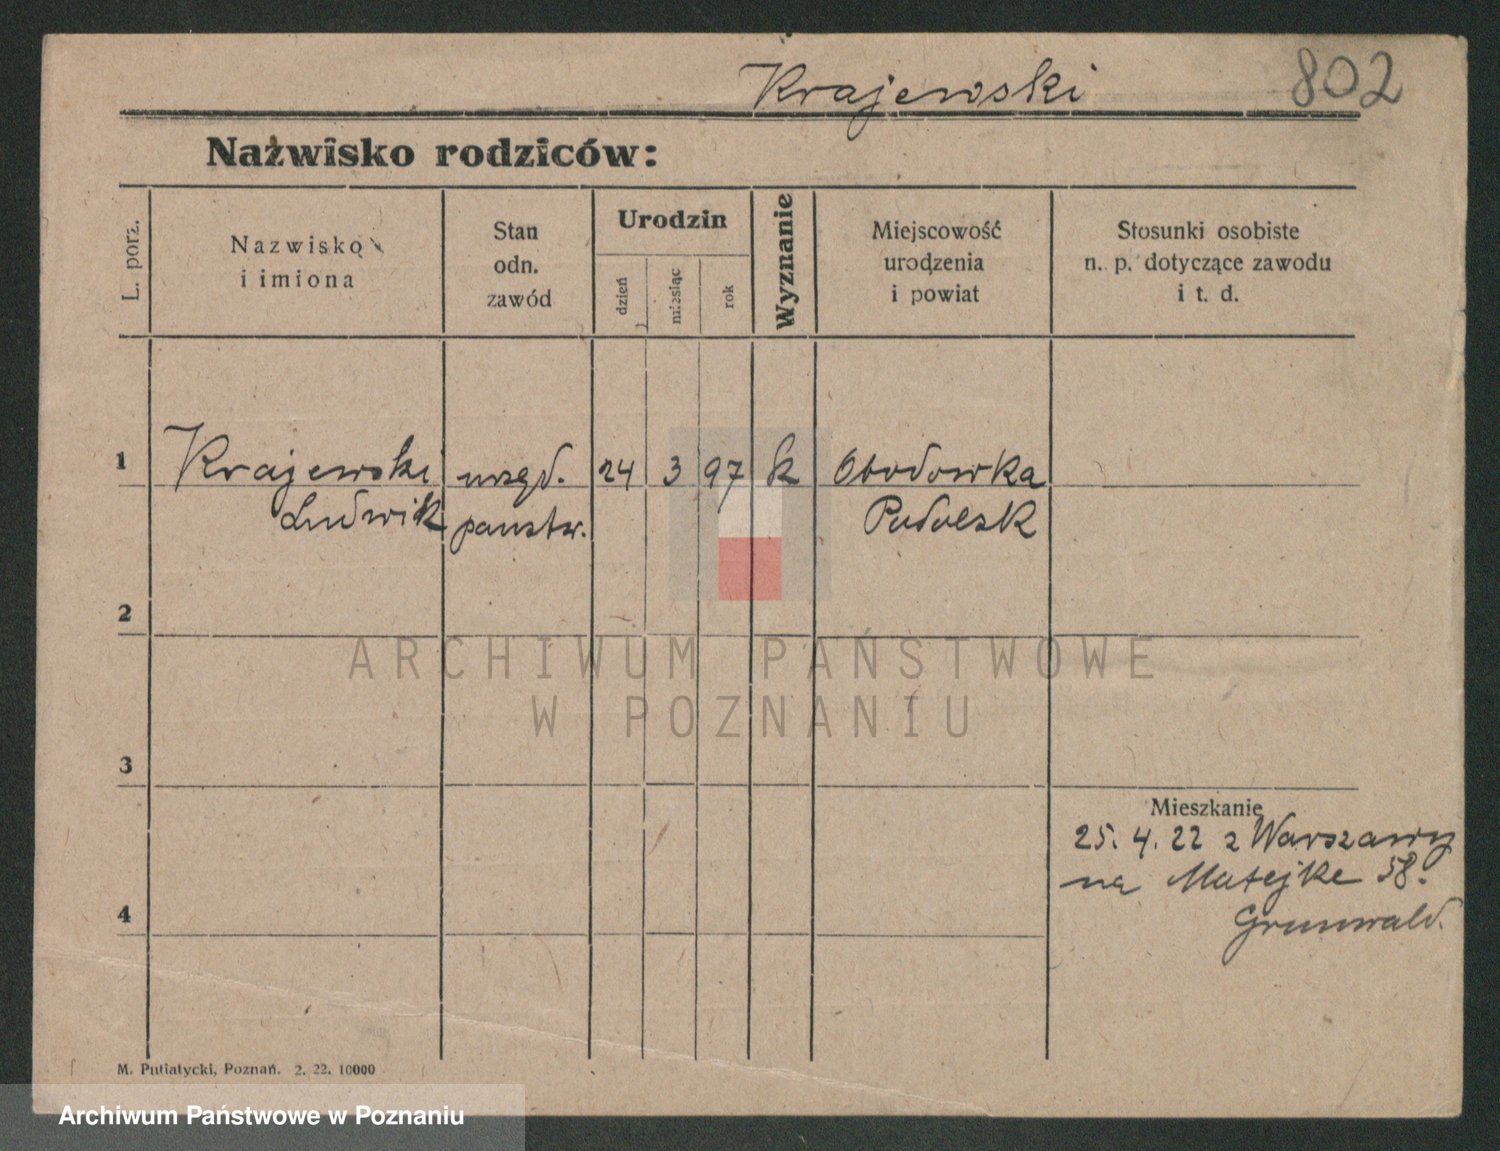 Krajewski 802
Nazwisko rodziców:
L. porz.
Nazwisko
i imiona
Stan
odn.
zawód
Urodzin
dzień
miesiąc
rok
Wyznanie
Miejscowość
urodzenia
i powiat
Stosunki osobiste
n. p. dotyczące zawodu
i t. d.
1 Krajewski urzęd. 24 3 97 k Obodowka
Ludwik państw. Podolsk
2
ARCHIWUM PAŃSTWOWE
W POZNANIU
3
Mieszkanie
25. 4. 22 z Warszawy
na Matejke 58.
Grunwald.
4
M. Putiatycki, Poznań. 2. 22. 10000
Archiwum Państwowe w Poznaniu